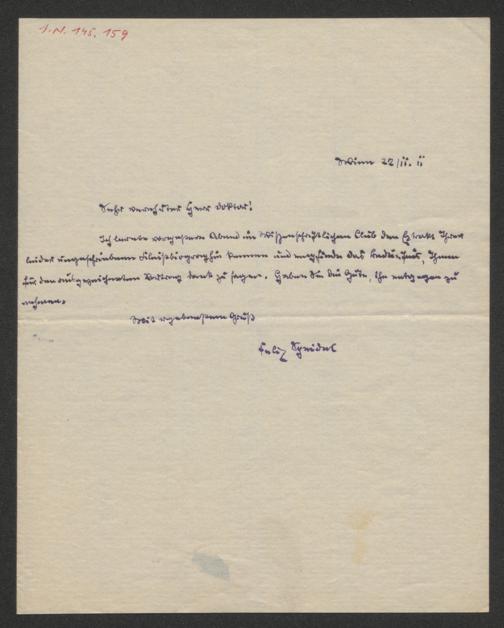 I.N. 145.159
Wien 22/II. 11
Sehr verehrter Herr Doktor!
Ich lernte vorgestern Abend im Wissenschaftlichen Club den Extrakt Ihrer
leider ungeschriebenen kennen und empfinde das Bedürfnis, Ihnen
für den ausgezeichneten Vortrag Dank zu sagen. Haben Sie die Güte, ihn entgegen zu
nehmen.
Mit ergebenstem Gruß
Felix Speidel